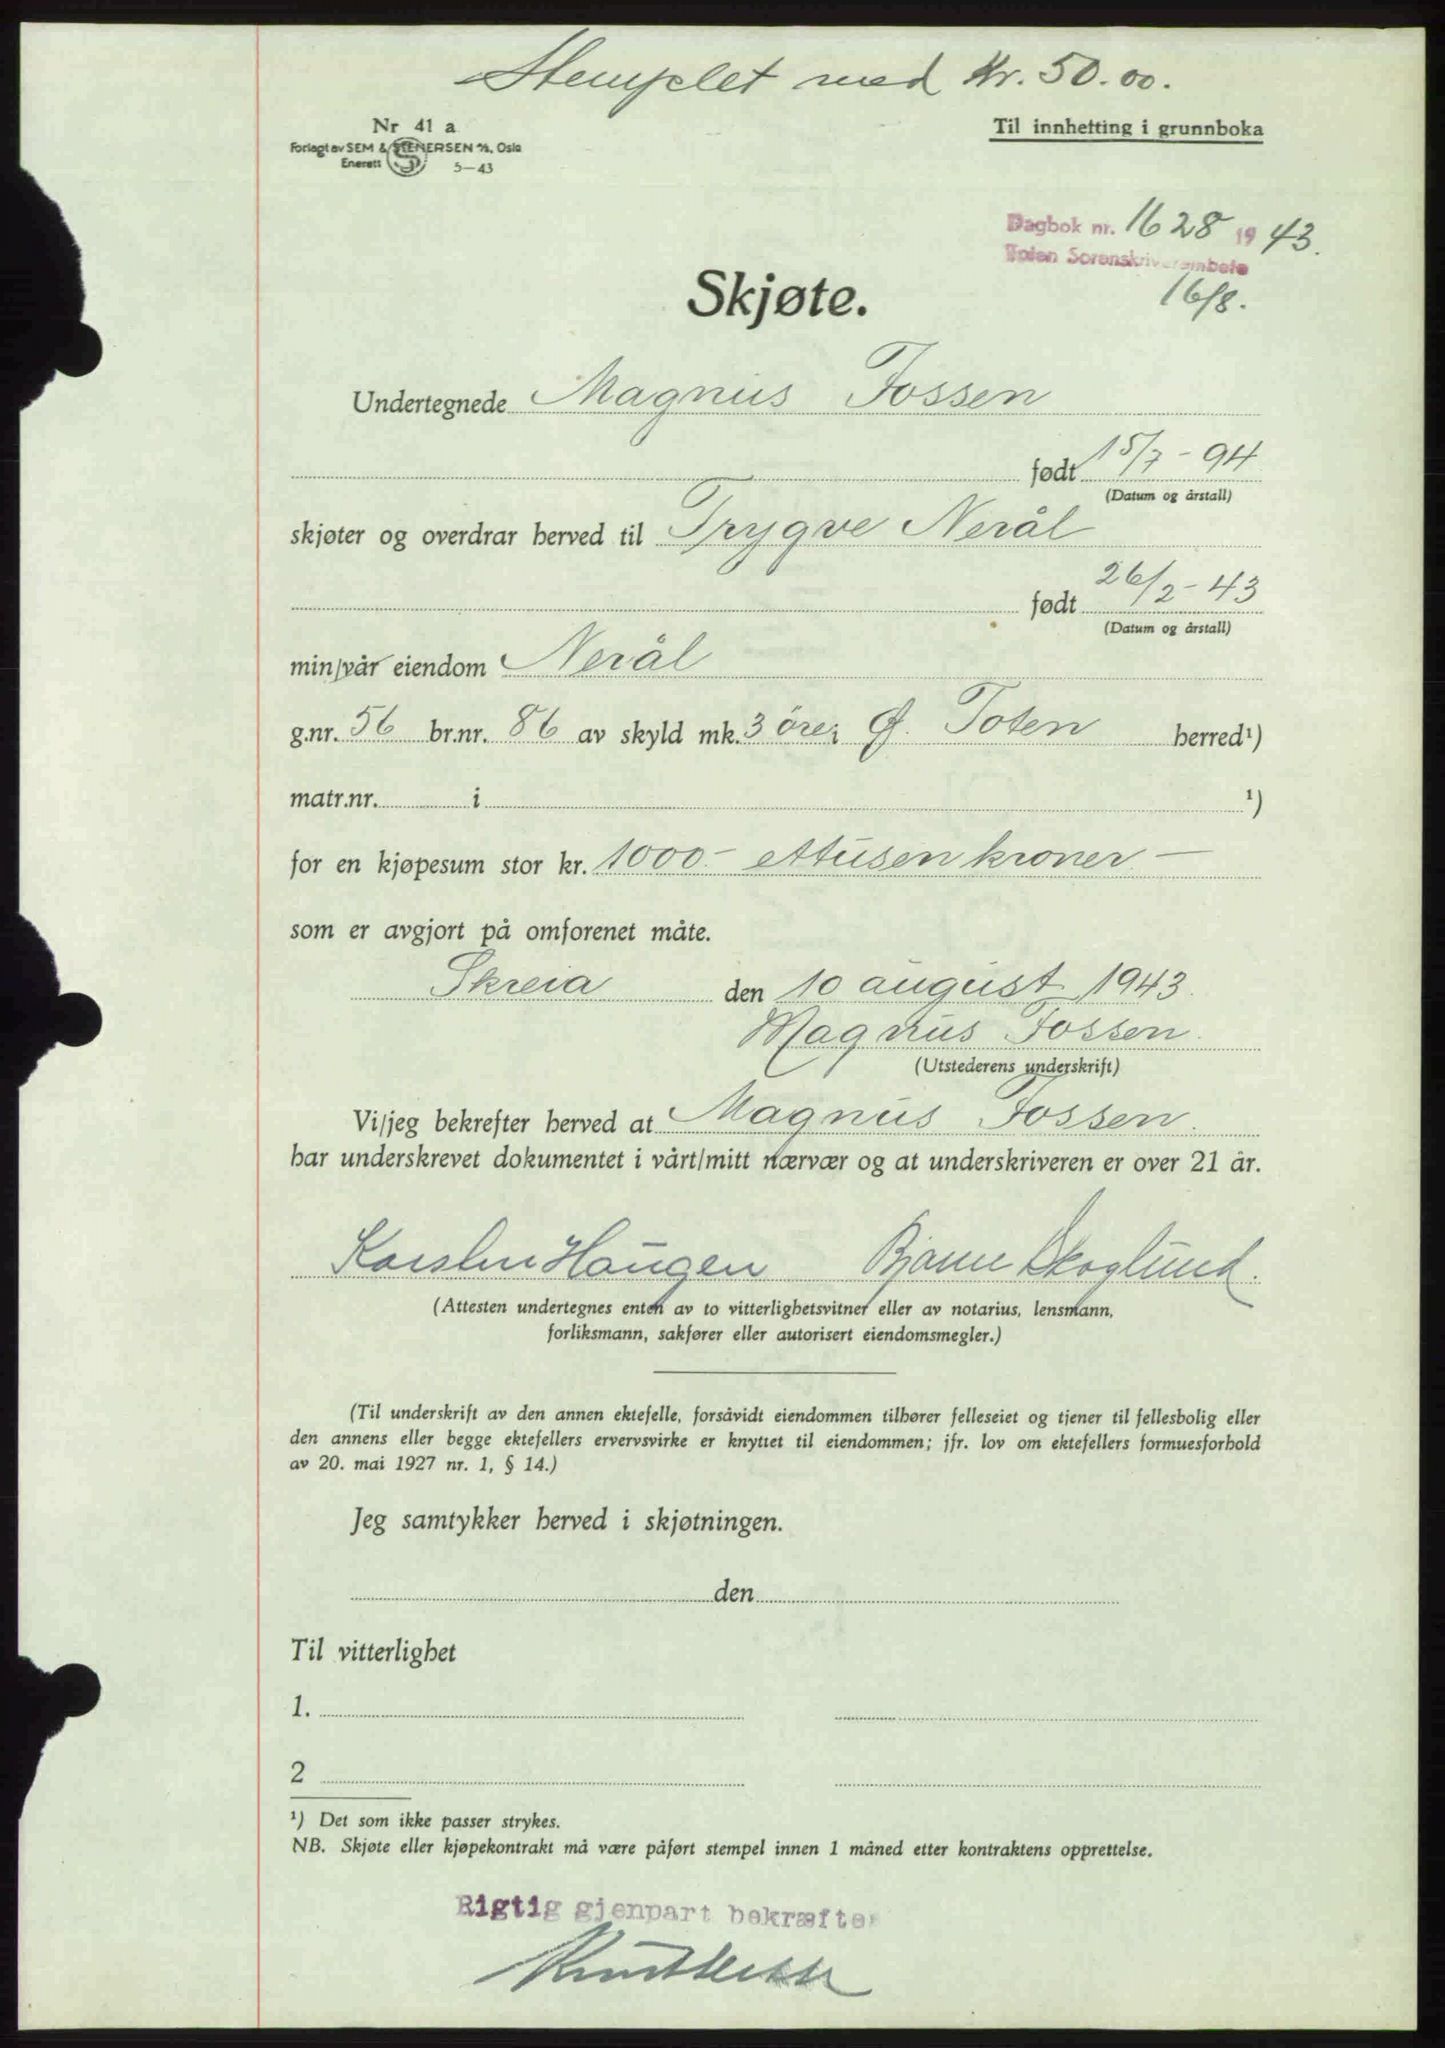 Stemplet med Kr. 50.00.
Nr 41 a
Forlagt av SEM & STENERSEN A/S, Oslo
Enerett 5—43
Til innhefting i grunnboka
Dagbok nr. 1628 1943.
Toten Sorenskriverembete
16/8.
Skjøte.
Undertegnede Magnus Fossen
født 15/7 - 94
(Datum og årstall)
skjøter og overdrar herved til Trygve Nerål
født 26/2 - 43
(Datum og årstall)
min/vår eiendom Nerål
g.nr. 56 br.nr. 86 av skyld mk. 3 øre i Ø. Toten herred¹)
matr.nr. i ¹)
for en kjøpesum stor kr. 1000.- ettusen kroner —
som er avgjort på omforenet måte.
Skreia den 10 august 1943.
Magnus Fossen.
(Utstederens underskrift)
Vi/jeg bekrefter herved at Magnus Fossen.
har underskrevet dokumentet i vårt/mitt nærvær og at underskriveren er over 21 år.
Karsten Haugen Bjarne Skoglund.
(Attesten undertegnes enten av to vitterlighetsvitner eller av notarius, lensmann,
forliksmann, sakfører eller autorisert eiendomsmegler.)
(Til underskrift av den annen ektefelle, forsåvidt eiendommen tilhører felleseiet og tjener til fellesbolig eller
den annens eller begge ektefellers ervervsvirke er knyttet til eiendommen; jfr. lov om ektefellers formuesforhold
av 20. mai 1927 nr. 1, § 14.)
Jeg samtykker herved i skjøtningen.
den
Til vitterlighet
1.
2
¹) Det som ikke passer strykes.
NB. Skjøte eller kjøpekontrakt må være påført stempel innen 1 måned etter kontraktens opprettelse.
Rigtig gjenpart bekræftes